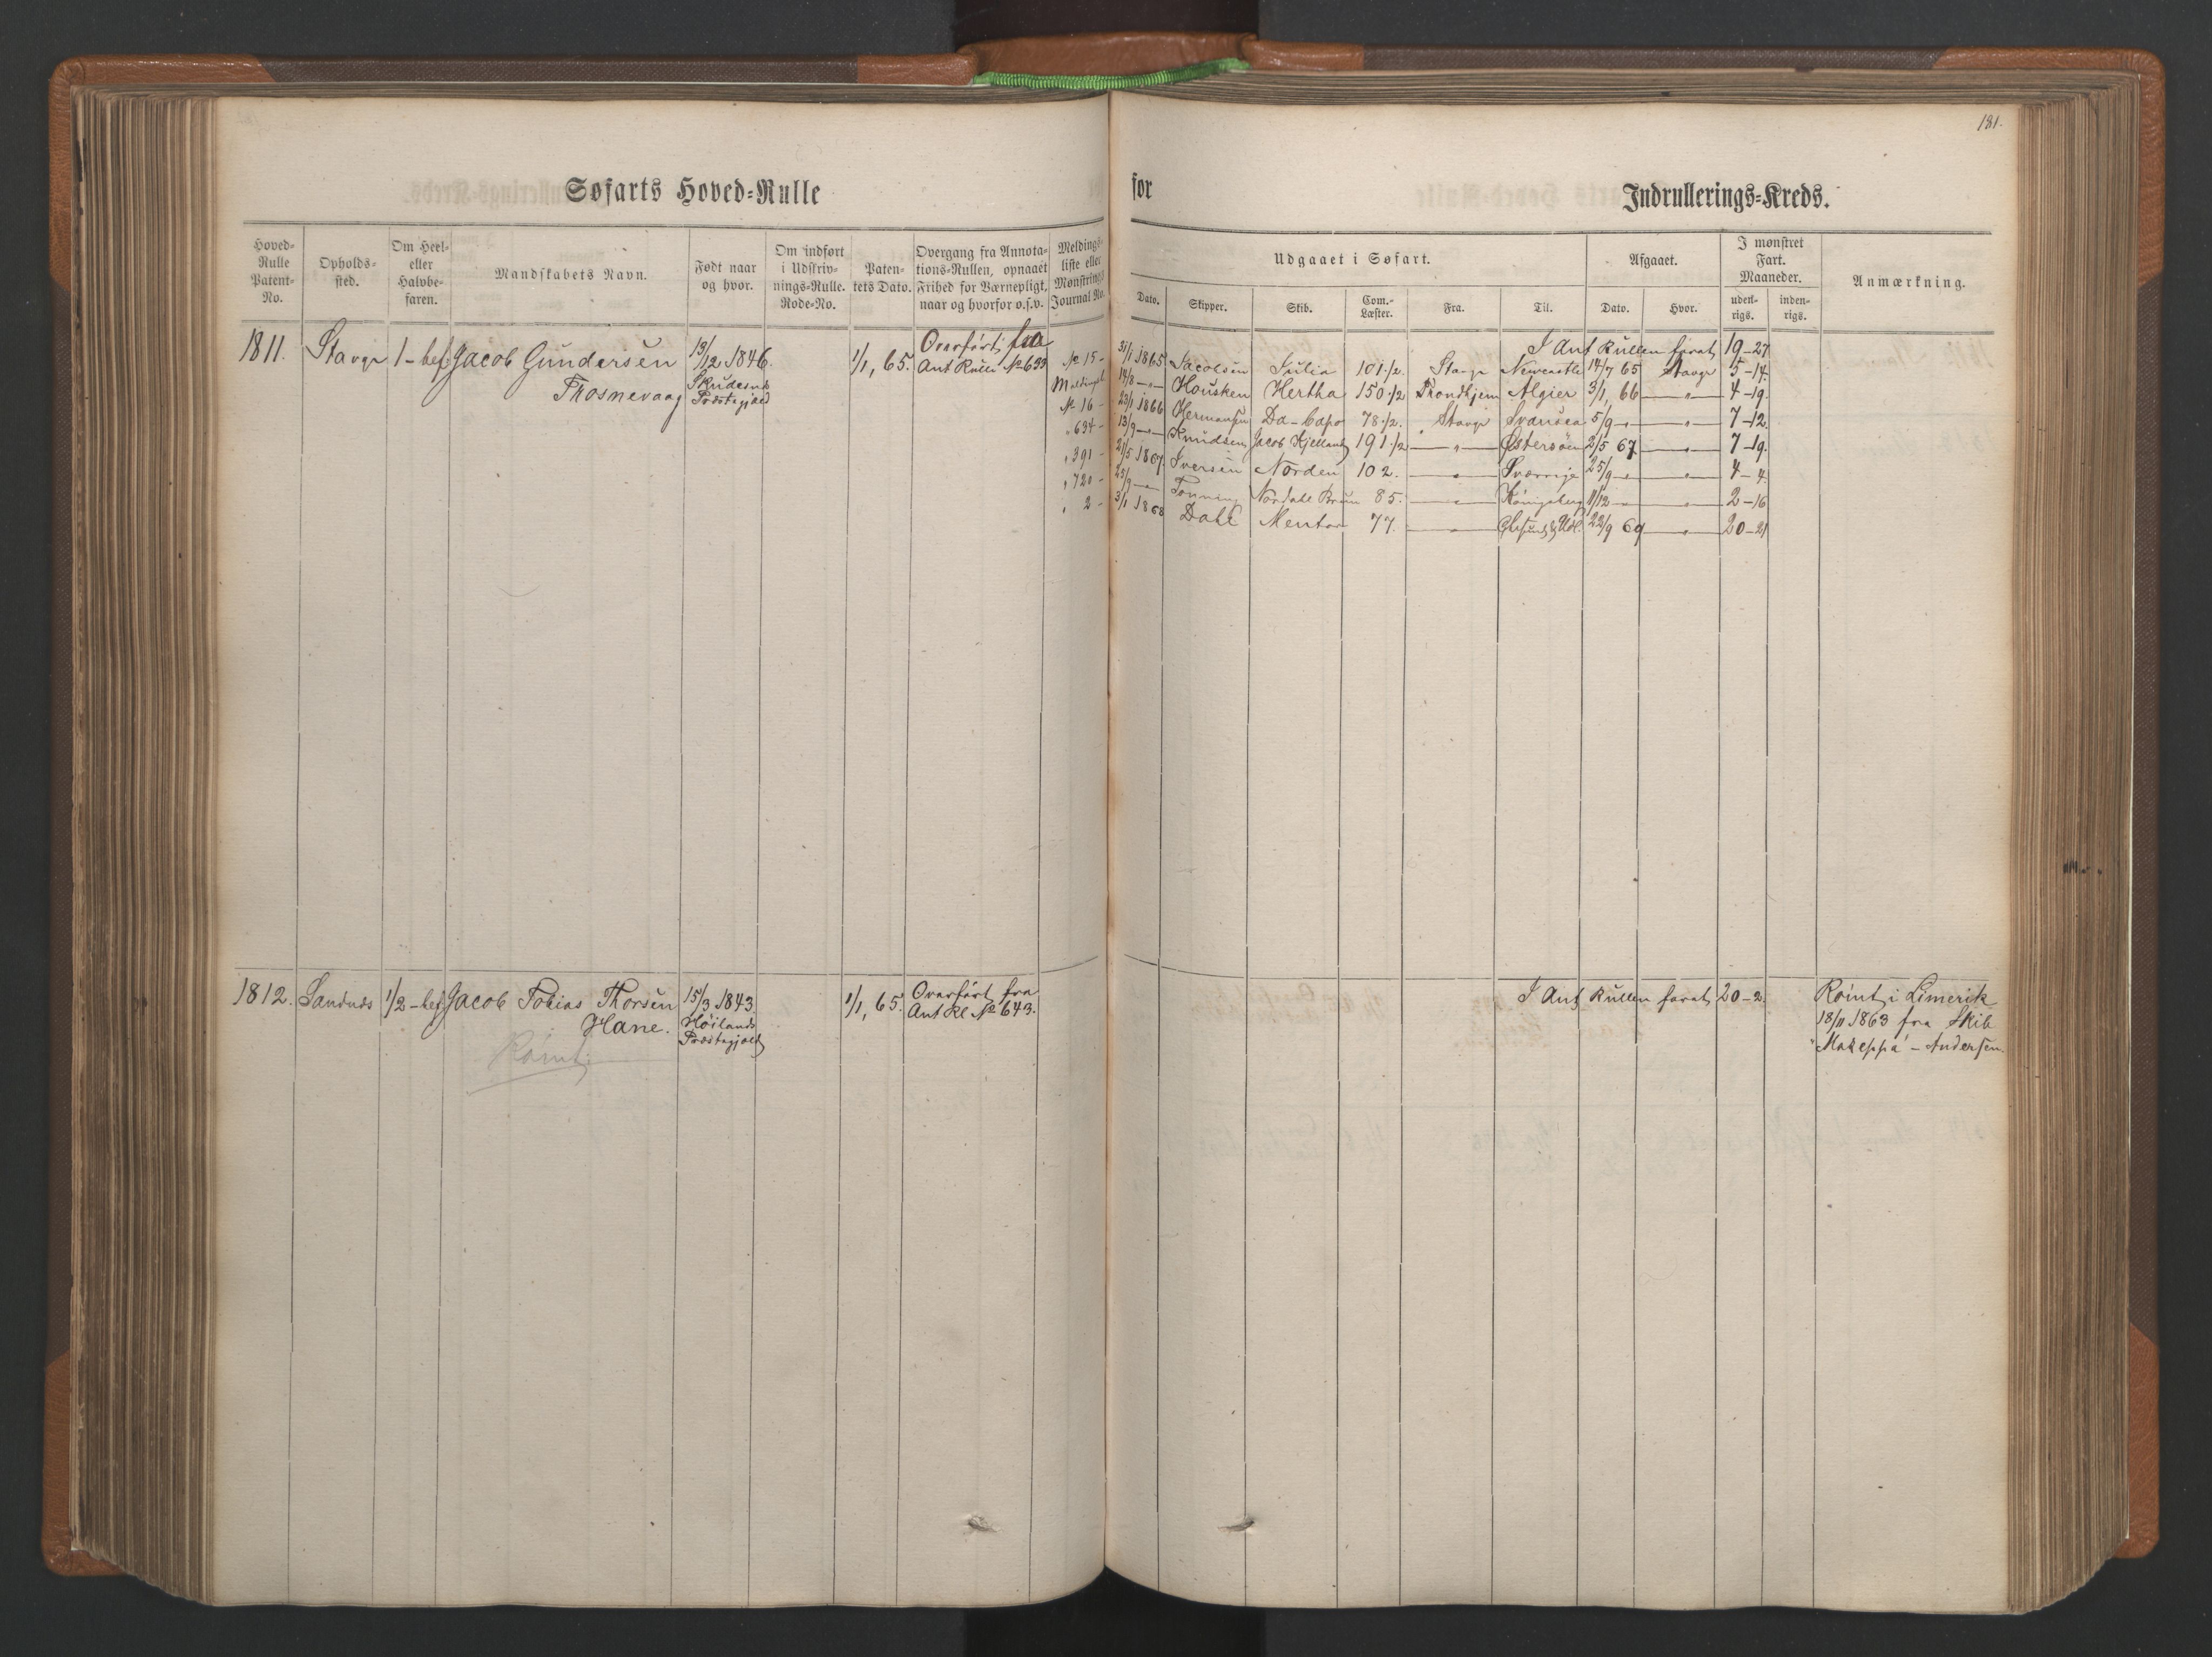 181.
Søfarts Hoved-Rulle
for
Indrullerings-Kreds.
Hoved-Rulle Patent-No.
Opholds-sted.
Om Heel- eller Halvbe-faren.
Mandskabets Navn.
Født naar og hvor.
Om indført i Udskriv-nings-Rulle. Rode-No.
Paten-tets Dato.
Overgang fra Annota-tions-Rullen, opnaaet Frihed for Værnepligt, naar og hvorfor o.s.v.
Meldings-liste eller Mønstrings Journal No.
Udgaaet i Søfart.
Afgaaet.
I mønstret Fart. Maaneder.
Anmærkning.
Dato. Skipper. Skib. Com.-Læster. Fra. Til. Dato. Hvor. uden-rigs. inden-rigs.
1811. Stavgr 1-bef. Jacob Gundersen 13/12 1846. 1/1, 65. Overført fra
Thosnevaag Skudesnes Præstegjæld Ant Rulle No 633
I Ant Rullen faret 19-27
No 15- 31/1 1865 Jacobsen Julia 101 1/2 Stavgr Newcastle 14/7 65 Stavgr 5-14.
Meldingsl. 14/8 -"- Housken Hertha 150 1/2 Trondhjem Algier 3/1, 66 -"- 4-19.
No 16- 23/1 1866 Hermansen Da-Capo 78 1/2. Stavgr Svansea 5/9 -"- -"- 7-12.
" 634- 13/9 -"- Knudsen Jacob Kjelland 191 1/2 -"- Østersøen 2/5 67 -"- 7-19.
" 391- 21/5 1867. Iversen Norden 102. -"- Sverrige 25/9 -"- -"- 4-4.
" 720- 25/9 -"- Tonning Nordahl Brun 85. -"- Königsberg 11/12 -"- -"- 2-16
" 2- 3/1 1868 Dahl Mentor 77. -"- & Udl. 22/9 69 -"- 20-21
1812. Sandnes 1/2-bef. Jacob Tobias Thorsen 15/3 1843. 1/1, 65. Overført fra
Hane. Høilands Præstegjæld Ant Rl No 643.
Rømt
I Ant Rullen faret 20-2.
Rømt i Limerik
18/11 1863 fra Skib
"Makeppa" - Andersen.